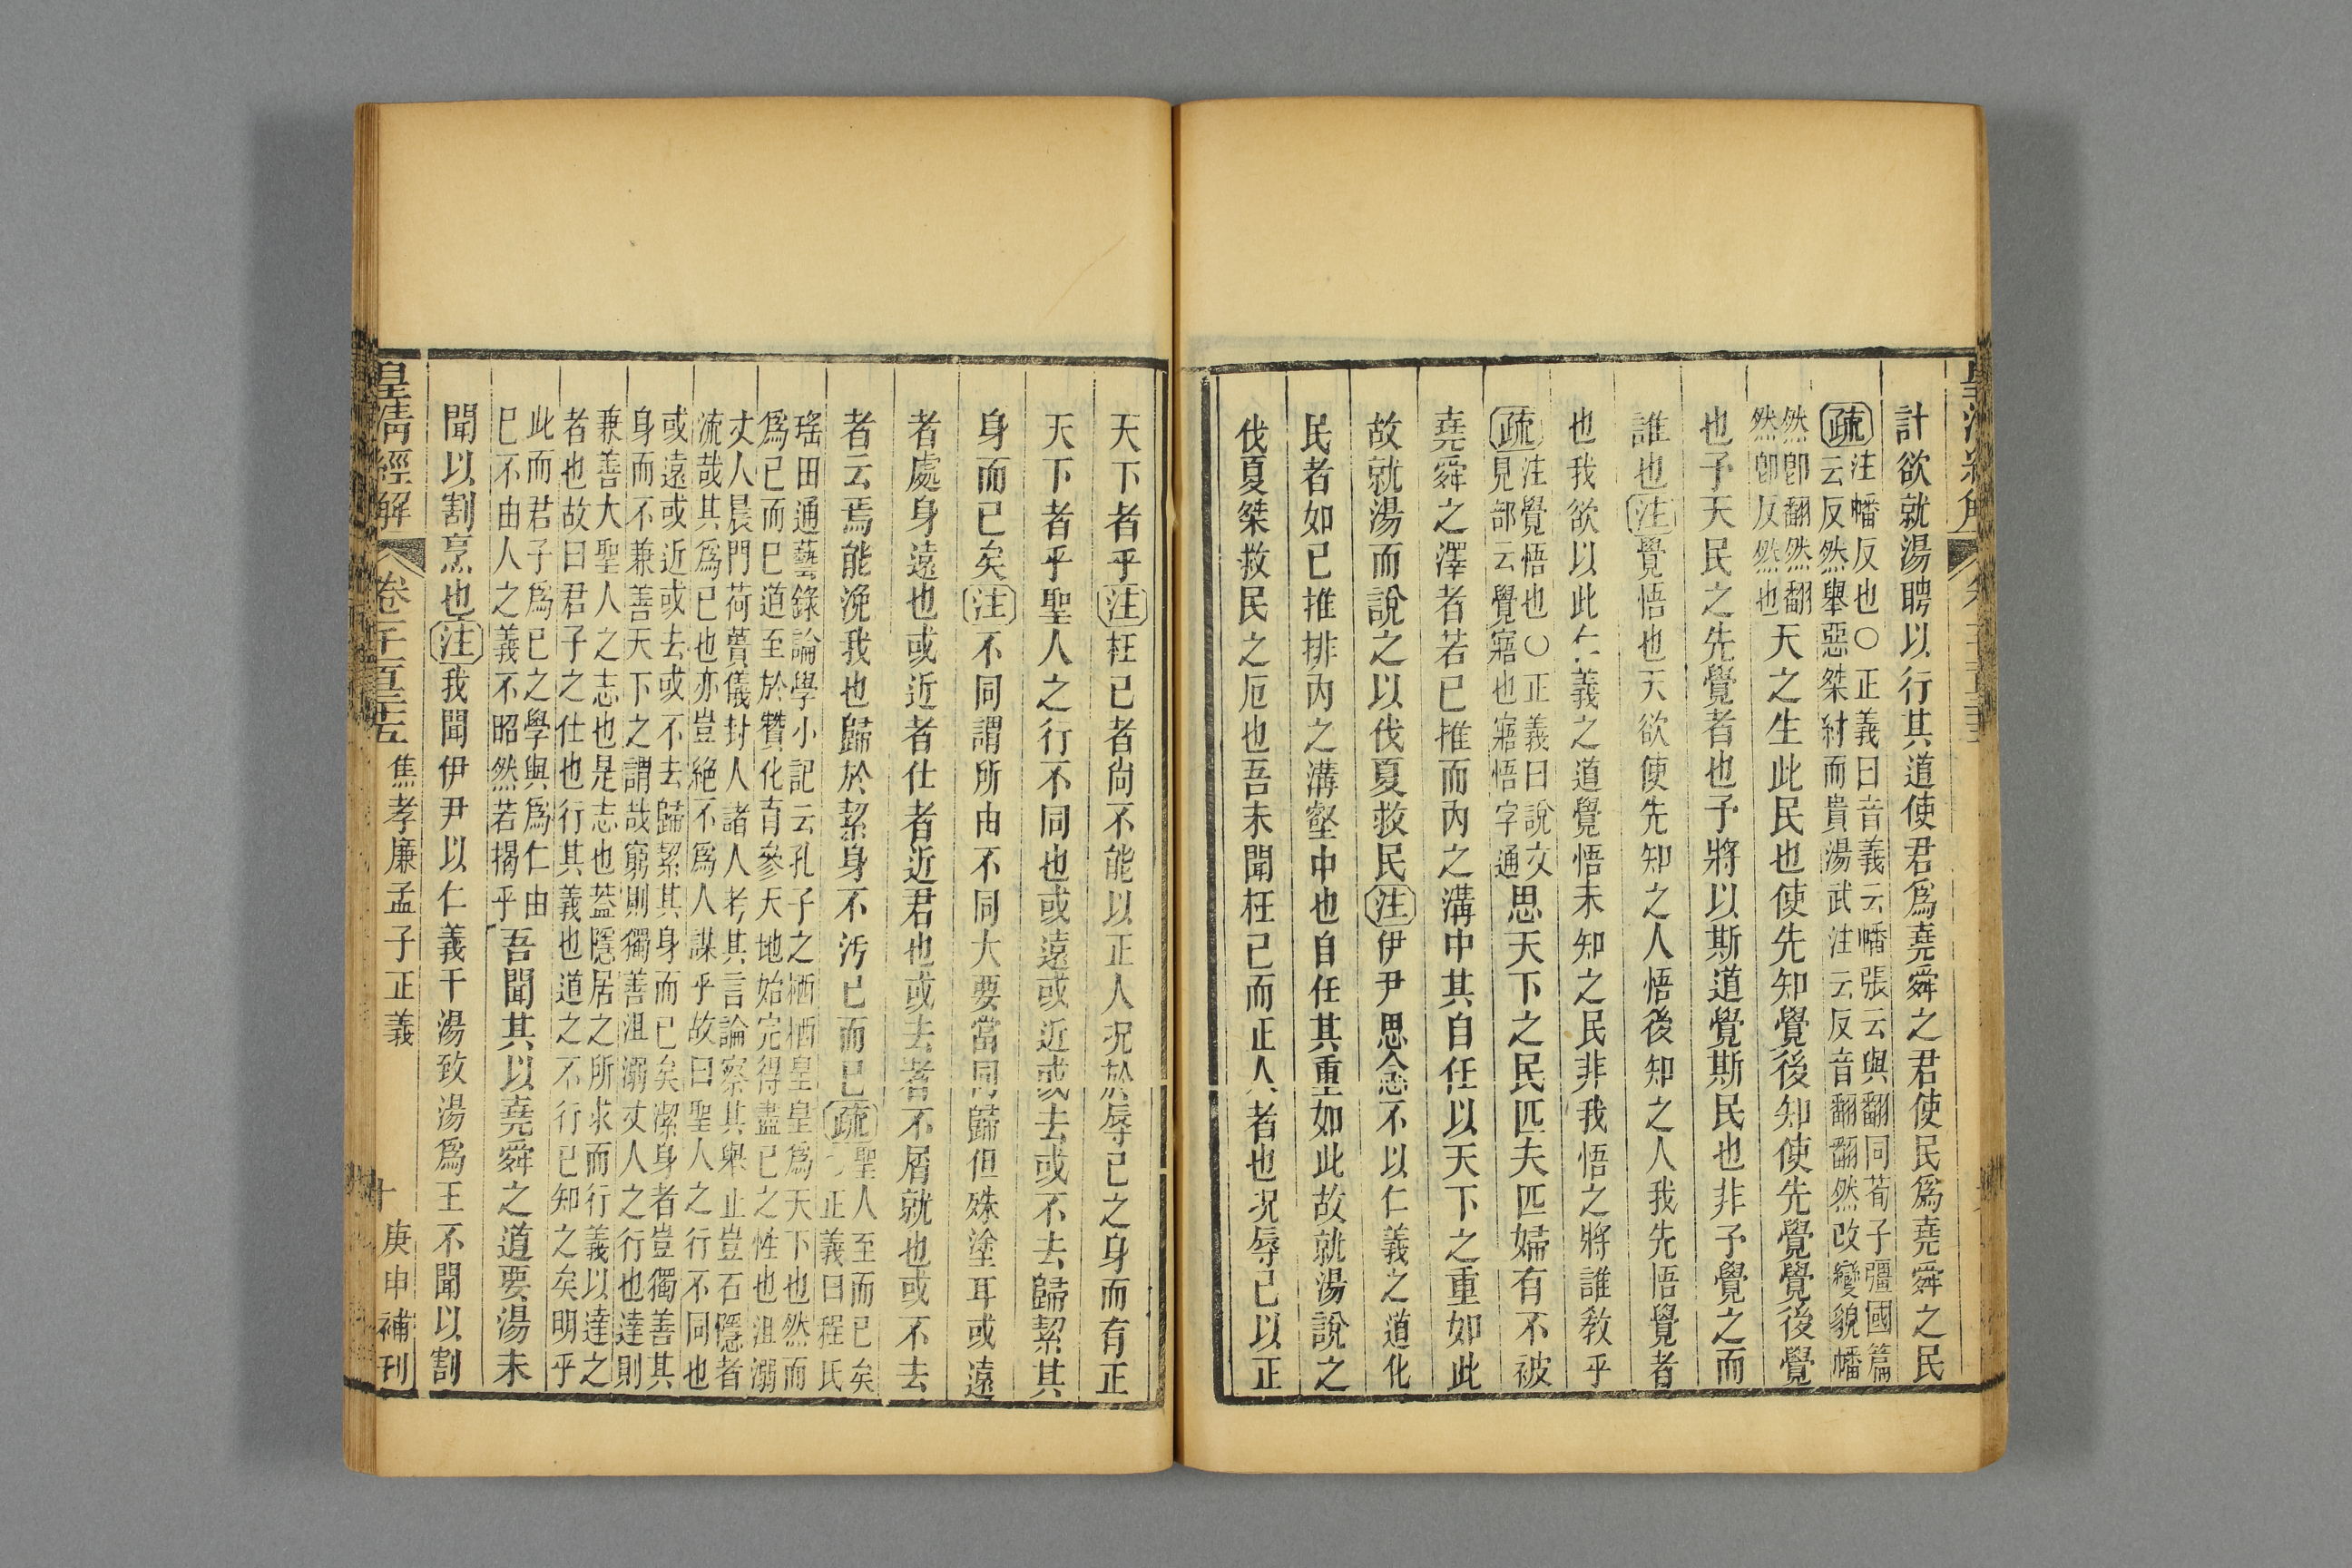 計欲就湯聘以行其道使君爲堯舜之君使民爲堯舜之民
疏注幡反也○正義曰音義云幡張云與翻同荀子彊國篇
云反然舉惡桀紂而貴湯武注云反音翻翻然改變貌幡
然卽翻然翻
然卽反然也天之生此民也使先知覺後知使先覺覺後覺
也予天民之先覺者也予將以斯道覺斯民也非予覺之而
誰也注覺悟也天欲使先知之人悟後知之人我先悟覺者
也我欲以此仁義之道覺悟未知之民非我悟之將誰教乎
疏注覺悟也○正義曰說文
見部云覺寤也寤悟字通思天下之民匹夫匹婦有不被
堯舜之澤者若已推而內之溝中其自任以天下之重如此
故就湯而說之以伐夏救民注伊尹思念不以仁義之道化
民者如已推排內之溝壑中也自任其重如此故就湯說之
伐夏桀救民之厄也吾未聞枉己而正人者也况辱己以正
天下者乎注枉已者尚不能以正人况於辱已之身而有正
天下者乎聖人之行不同也或遠或近或去或不去歸絜其
身而已矣注不同謂所由不同大要當同歸但殊塗耳或遠
者處身遠也或近者仕者近君也或去者不屑就也或不去
者云焉能浼我也歸於絜身不汚已而已疏聖人至而已矣
正義曰程氏
瑤田通藝錄論學小記云孔子之栖栖皇皇爲天下也然而
爲已而已道至於贊化育參天地始完得盡已之性也沮溺
丈人晨門荷蕢儀封人諸人考其言論察其舉止豈石隱者
流哉其爲已也亦豈絶不爲人謀乎故曰聖人之行不同也
或遠或近或去或不去歸絜其身而已矣潔身者豈獨善其
身而不兼善天下之謂哉窮則獨善沮溺丈人之行也達則
兼善大聖人之志也是志也蓋隱居之所求而行義以達之
者也故曰君子之仕也行其義也道之不行已知之矣明乎
此而君子爲已之學與爲仁由
已不由人之義不昭然若揭乎吾聞其以堯舜之道要湯未
聞以割烹也注我聞伊尹以仁義干湯致湯爲王不聞以割
皇清經解
卷
焦孝廉孟子正義
十
庚申補刊